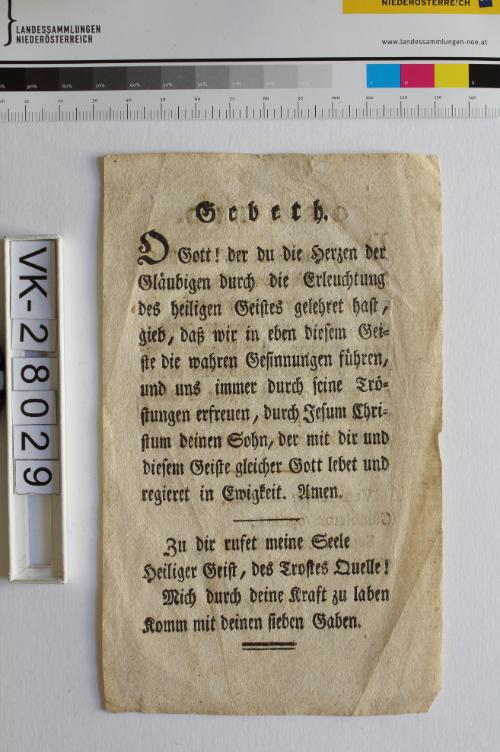 NIEDERÖSTERREICH
LANDESSAMMLUNGEN
NIEDERÖSTERREICH
www.landessammlungen-noe.at
VK-28029
Gebeth.
O Gott! der du die Herzen der
Gläubigen durch die Erleuchtung
des heiligen Geistes gelehret hast,
gieb, daß wir in eben diesem Gei=
ste die wahren Gesinnungen führen,
und uns immer durch seine Trö=
stungen erfreuen, durch Jesum Chri=
stum deinen Sohn, der mit dir und
diesem Geiste gleicher Gott lebet und
regieret in Ewigkeit. Amen.
Zu dir rufet meine Seele
Heiliger Geist, des Trostes Quelle!
Mich durch deine Kraft zu laben
Komm mit deinen sieben Gaben.